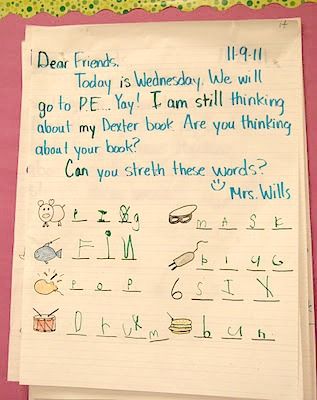 Dear Friends, 11-9-11
Today is Wednesday. We will
go to P.E... Yay! I am still thinking
about my Dexter book Are you thinking
about your book?
Can you streth these words?
Mrs. Wills
p i g
m A S K
F i N
p l u G
P o P
6 S I X
D r u m
b u n